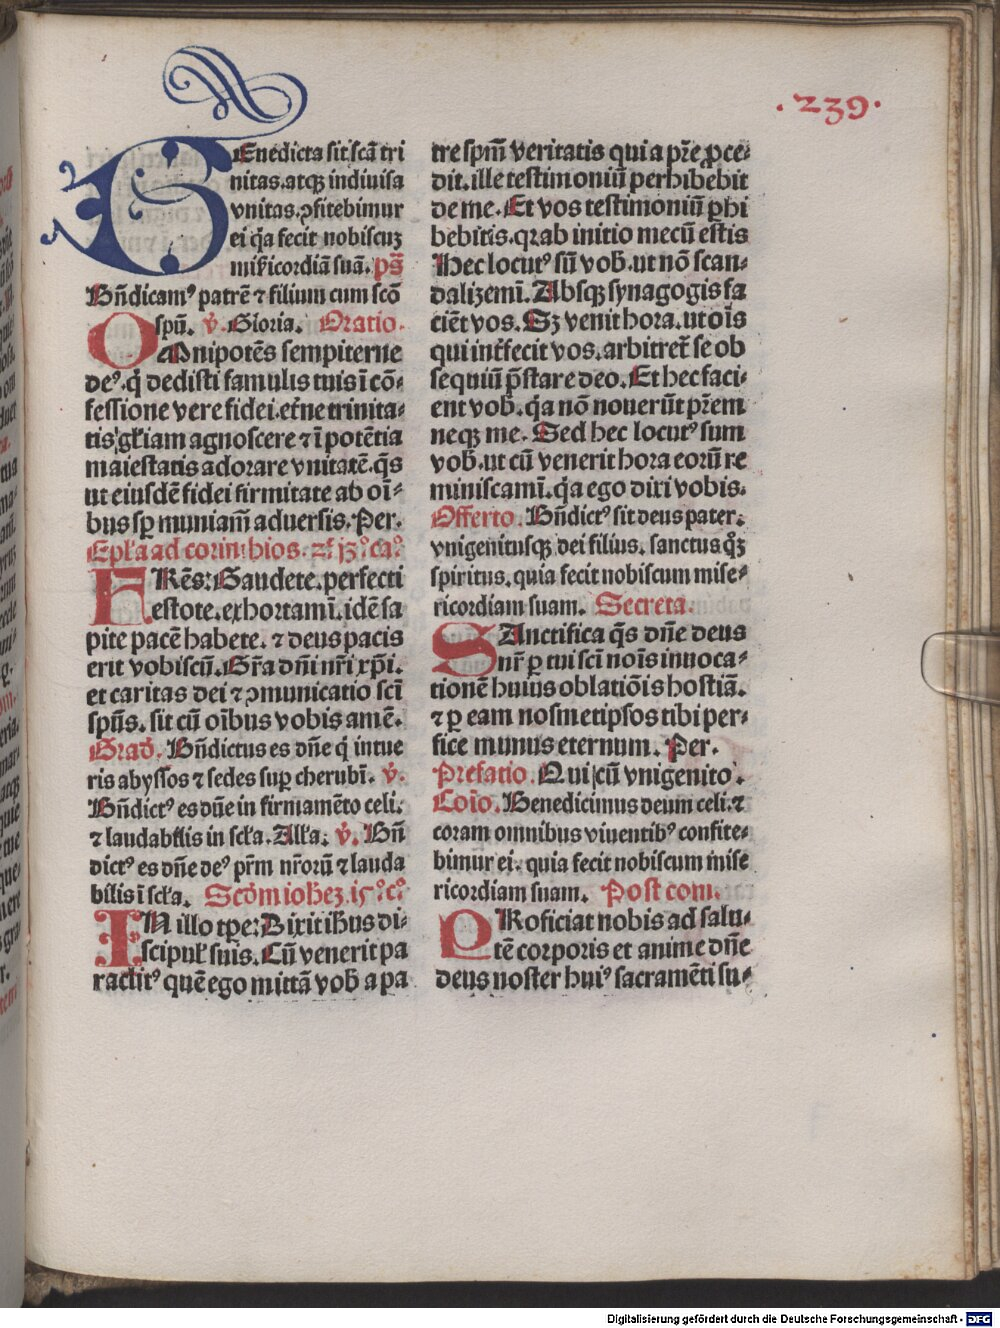 .239.
BEnedicta sit scā tri
nitas. atqꝫ indiuisa
vnitas. ꝯfitebimur
ei q̄a fecit nobiscuꝫ
mīẜicordiā suā. ps̄
Bn̄dicamꝰ patrē ⁊ filium cum scō
spū. v̓. Gloria. Oratio.
OMnipotēs sempiterne
deꝰ. q̇ dedisti famulis tuis ī cō-
fessione vere fidei. et̄ne trinita-
tis gl̄iam agnoscere ⁊ ī potētia
maiestatis adorare vnitatē. q̄s
ut eiusdē fidei firmitate ab oī-
bus sꝑ muniam̄ aduersis. Per.
Epl̄a ad corinthios. 2ͤ 13ͦ caͦ
FRēs: Gaudete. perfecti
estote. exhortamī. idē sa
pite pacē habete. ⁊ deus pacis
erit vobiscū. Gr̄a dn̄i nr̄i xp̄i.
et caritas dei ⁊ ꝯmunicatio scī
spūs. sit cū oībus vobis amē.
Grad̄. Bn̄dictus es dn̄e q̇ intue
ris abyssos ⁊ sedes suꝑ cherubī. v̓.
Bn̄dictꝰ es dn̄e in firmamēto celi.
⁊ laudabilis in scl̄a. All̄a. v̓. Bn̄
dictꝰ es dn̄e deꝰ pr̄m nr̄orū ⁊ lauda
bilis ī scl̄a. Scd̄m ioheꝫ. 15ͦ cͦ
IN illo tꝑe: Dixit ihūs di-
scipul̄ suis. Cū venerit pa
raclitꝰ quē ego mittā vob̄ a pa
tre spm̄ veritatis qui a pr̄e ꝓce-
dit. ille testimoniū perhibebit
de me. Et vos testimoniū ꝑhi
bebitis. qr ab initio mecū estis
Hec locutꝰ sū vob̄. ut nō scan-
dalizemī. Absqꝫ synagogis fa
ciēt vos. Sꝫ venit hora. ut oīs
qui int̄fecit vos. arbitret̄ se ob
sequiū p̄stare deo. Et hec faci-
ent vob̄. q̄a nō nouerūt pr̄em
neqꝫ me. Sed hec locutꝰ sum
vob̄. ut cū venerit hora eorū re
miniscamī. q̄a ego dixi vobis.
Offerto. Bn̄dictꝰ sit deus pater.
vnigenitusqꝫ dei filius. sanctus q̊ꝫ
spiritus. quia fecit nobiscum mise-
ricordiam suam. Secreta.
SAnctifica q̄s dn̄e deus
nr̄ ꝑ tui scī noīs inuoca-
tionē huius oblatiōis hostiā.
⁊ ꝑ eam nosmetipsos tibi per-
fice munus eternum. Per.
Prefatio. Qui cū vnigenito.
Coīo. Benedicimus deum celi. ⁊
coram omnibus viuentibꝰ confite-
bimur ei. quia fecit nobiscum mise
ricordiam suam. Post com.
PRoficiat nobis ad salu-
tē corporis et anime dn̄e
deus noster huiꝰ sacramēti su-
Digitalisierung gefördert durch die Deutsche Forschungsgemeinschaft - DFG